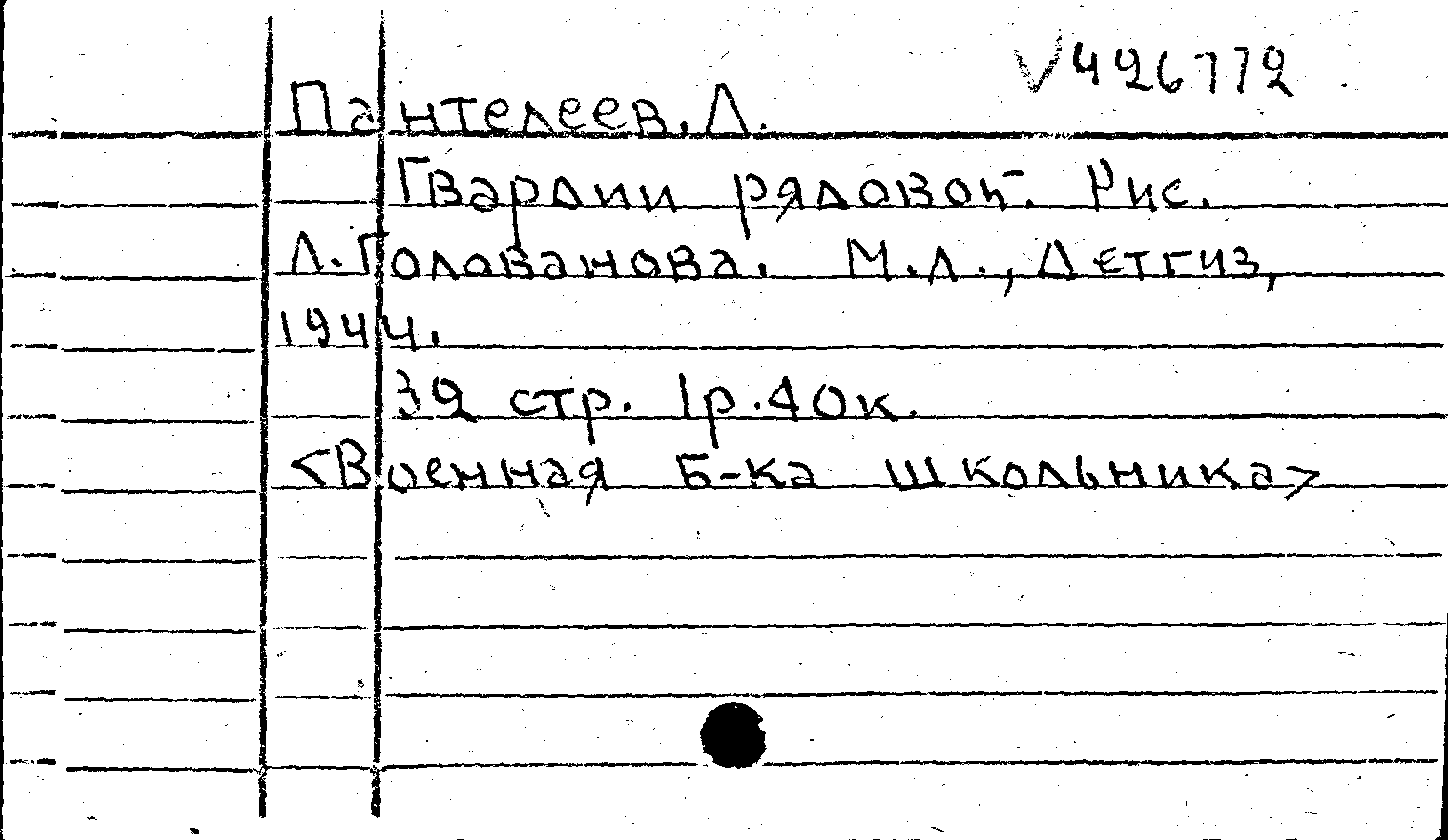 V426772
Пантелеев, Л.
Гвардии рядовой. Рис.
Л. Голованова. М.Л., Детгиз,
1944.
32 стр. 1р.40к.
<Военная б-ка школьника>